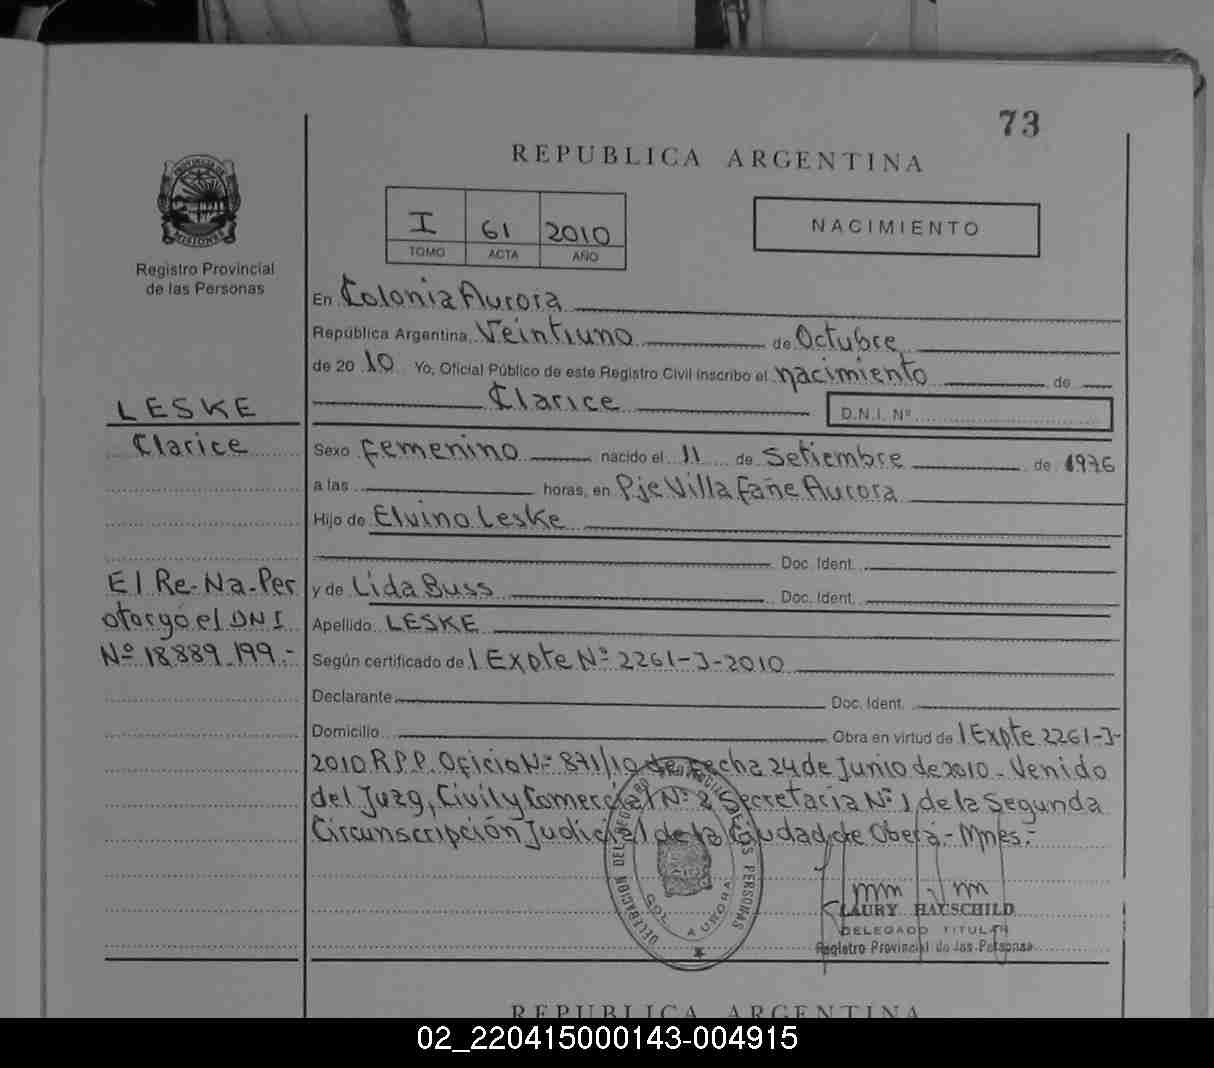 73
REPUBLICA ARGENTINA
PROVINCIA DE
MISIONES
Registro Provincial
de las Personas
I 61 2010
TOMO ACTA AÑO
NACIMIENTO
En Colonia Aurora
República Argentina, Veintiuno de Octubre
de 2010 Yo, Oficial Público de este Registro Civil inscribo el nacimiento de
Clarice D.N.I. Nº
LESKE
Clarice
Sexo Femenino nacido el 11 de Setiembre de 1976
a las horas, en Pje Villa Fañe Aurora
Hijo de Elvino Leske
Doc. Ident.
y de Lida Buss Doc. Ident.
Apellido LESKE
El Re-Na-Per
otorgó el DNI
Nº 18.889.199.-
Según certificado de Expte Nº 2261-J-2010
Declarante Doc. Ident.
Domicilio Obra en virtud de Expte 2261-J-
2010 R.P.P. Oficio Nº 871/10 de Fecha 24 de Junio de 2010 - Venido
del Juzg, Civil y Comercial Nº 2 Secretaria Nº 1 de la Segunda
Circunscripción Judicial de la Ciudad de Oberá - Mnes.-
DELEGACION DEL REGISTRO PROVINCIAL DE LAS PERSONAS
COL AURORA
LAURY HAUSCHILD
DELEGADO TITULAR
Registro Provincial de las Personas
REPUBLICA ARGENTINA
02_220415000143-004915